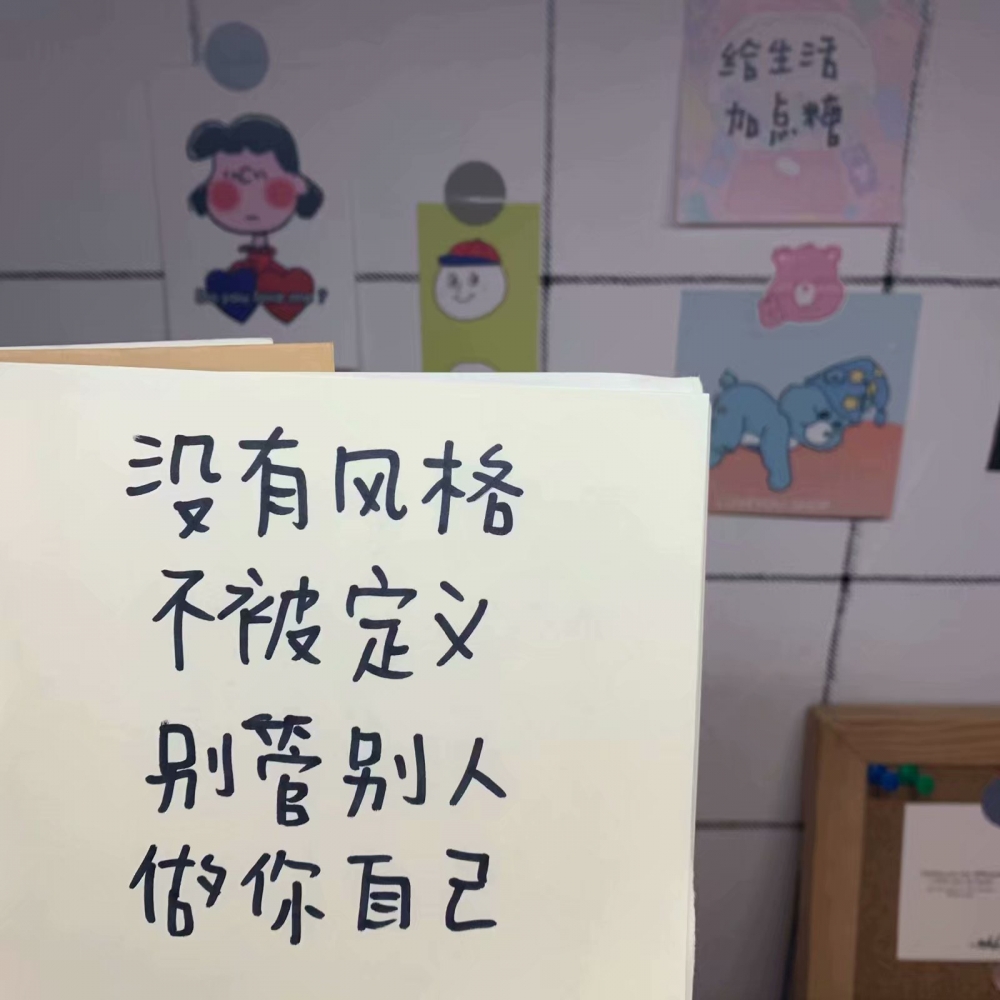 给生活
加点糖
Do you love me?
没有风格
不被定义
别管别人
做你自己